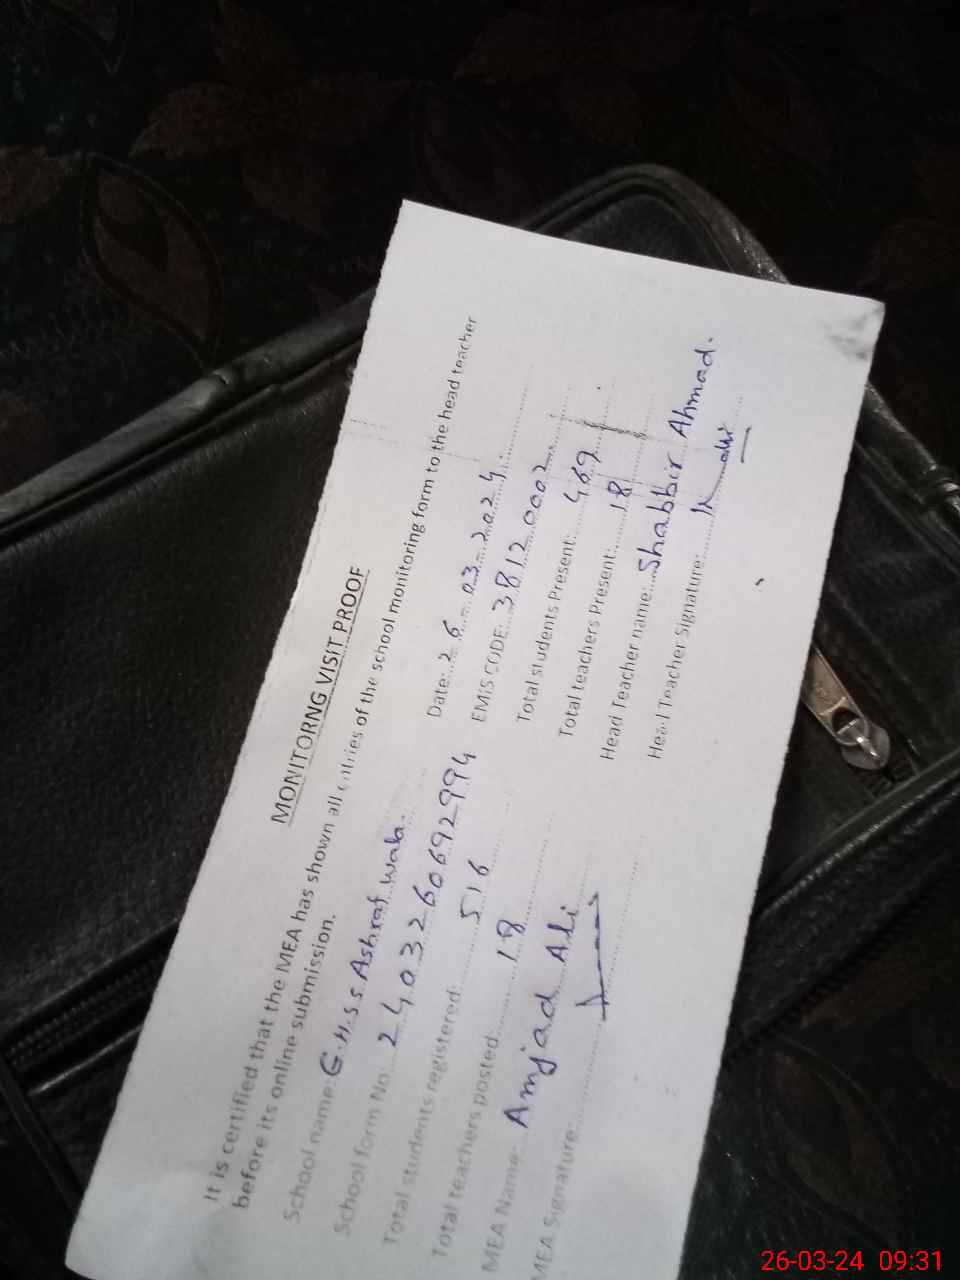 MONITORNG VISIT PROOF
It is certified that the MEA has shown all entries of the school monitoring form to the head teacher
before its online submission.
School name: G.H.S.S. Ashraf wala. Date: 26-03-2024.
School form No: 2403260692994 EMIS CODE: 38120002
Total students registered: 516 Total students Present: 469
Total teachers posted: 18 Total teachers Present: 18
MEA Name: Amjad Ali Head Teacher name: Shabbir Ahmad.
MEA Signature: Head Teacher Signature:
26-03-24 09:31